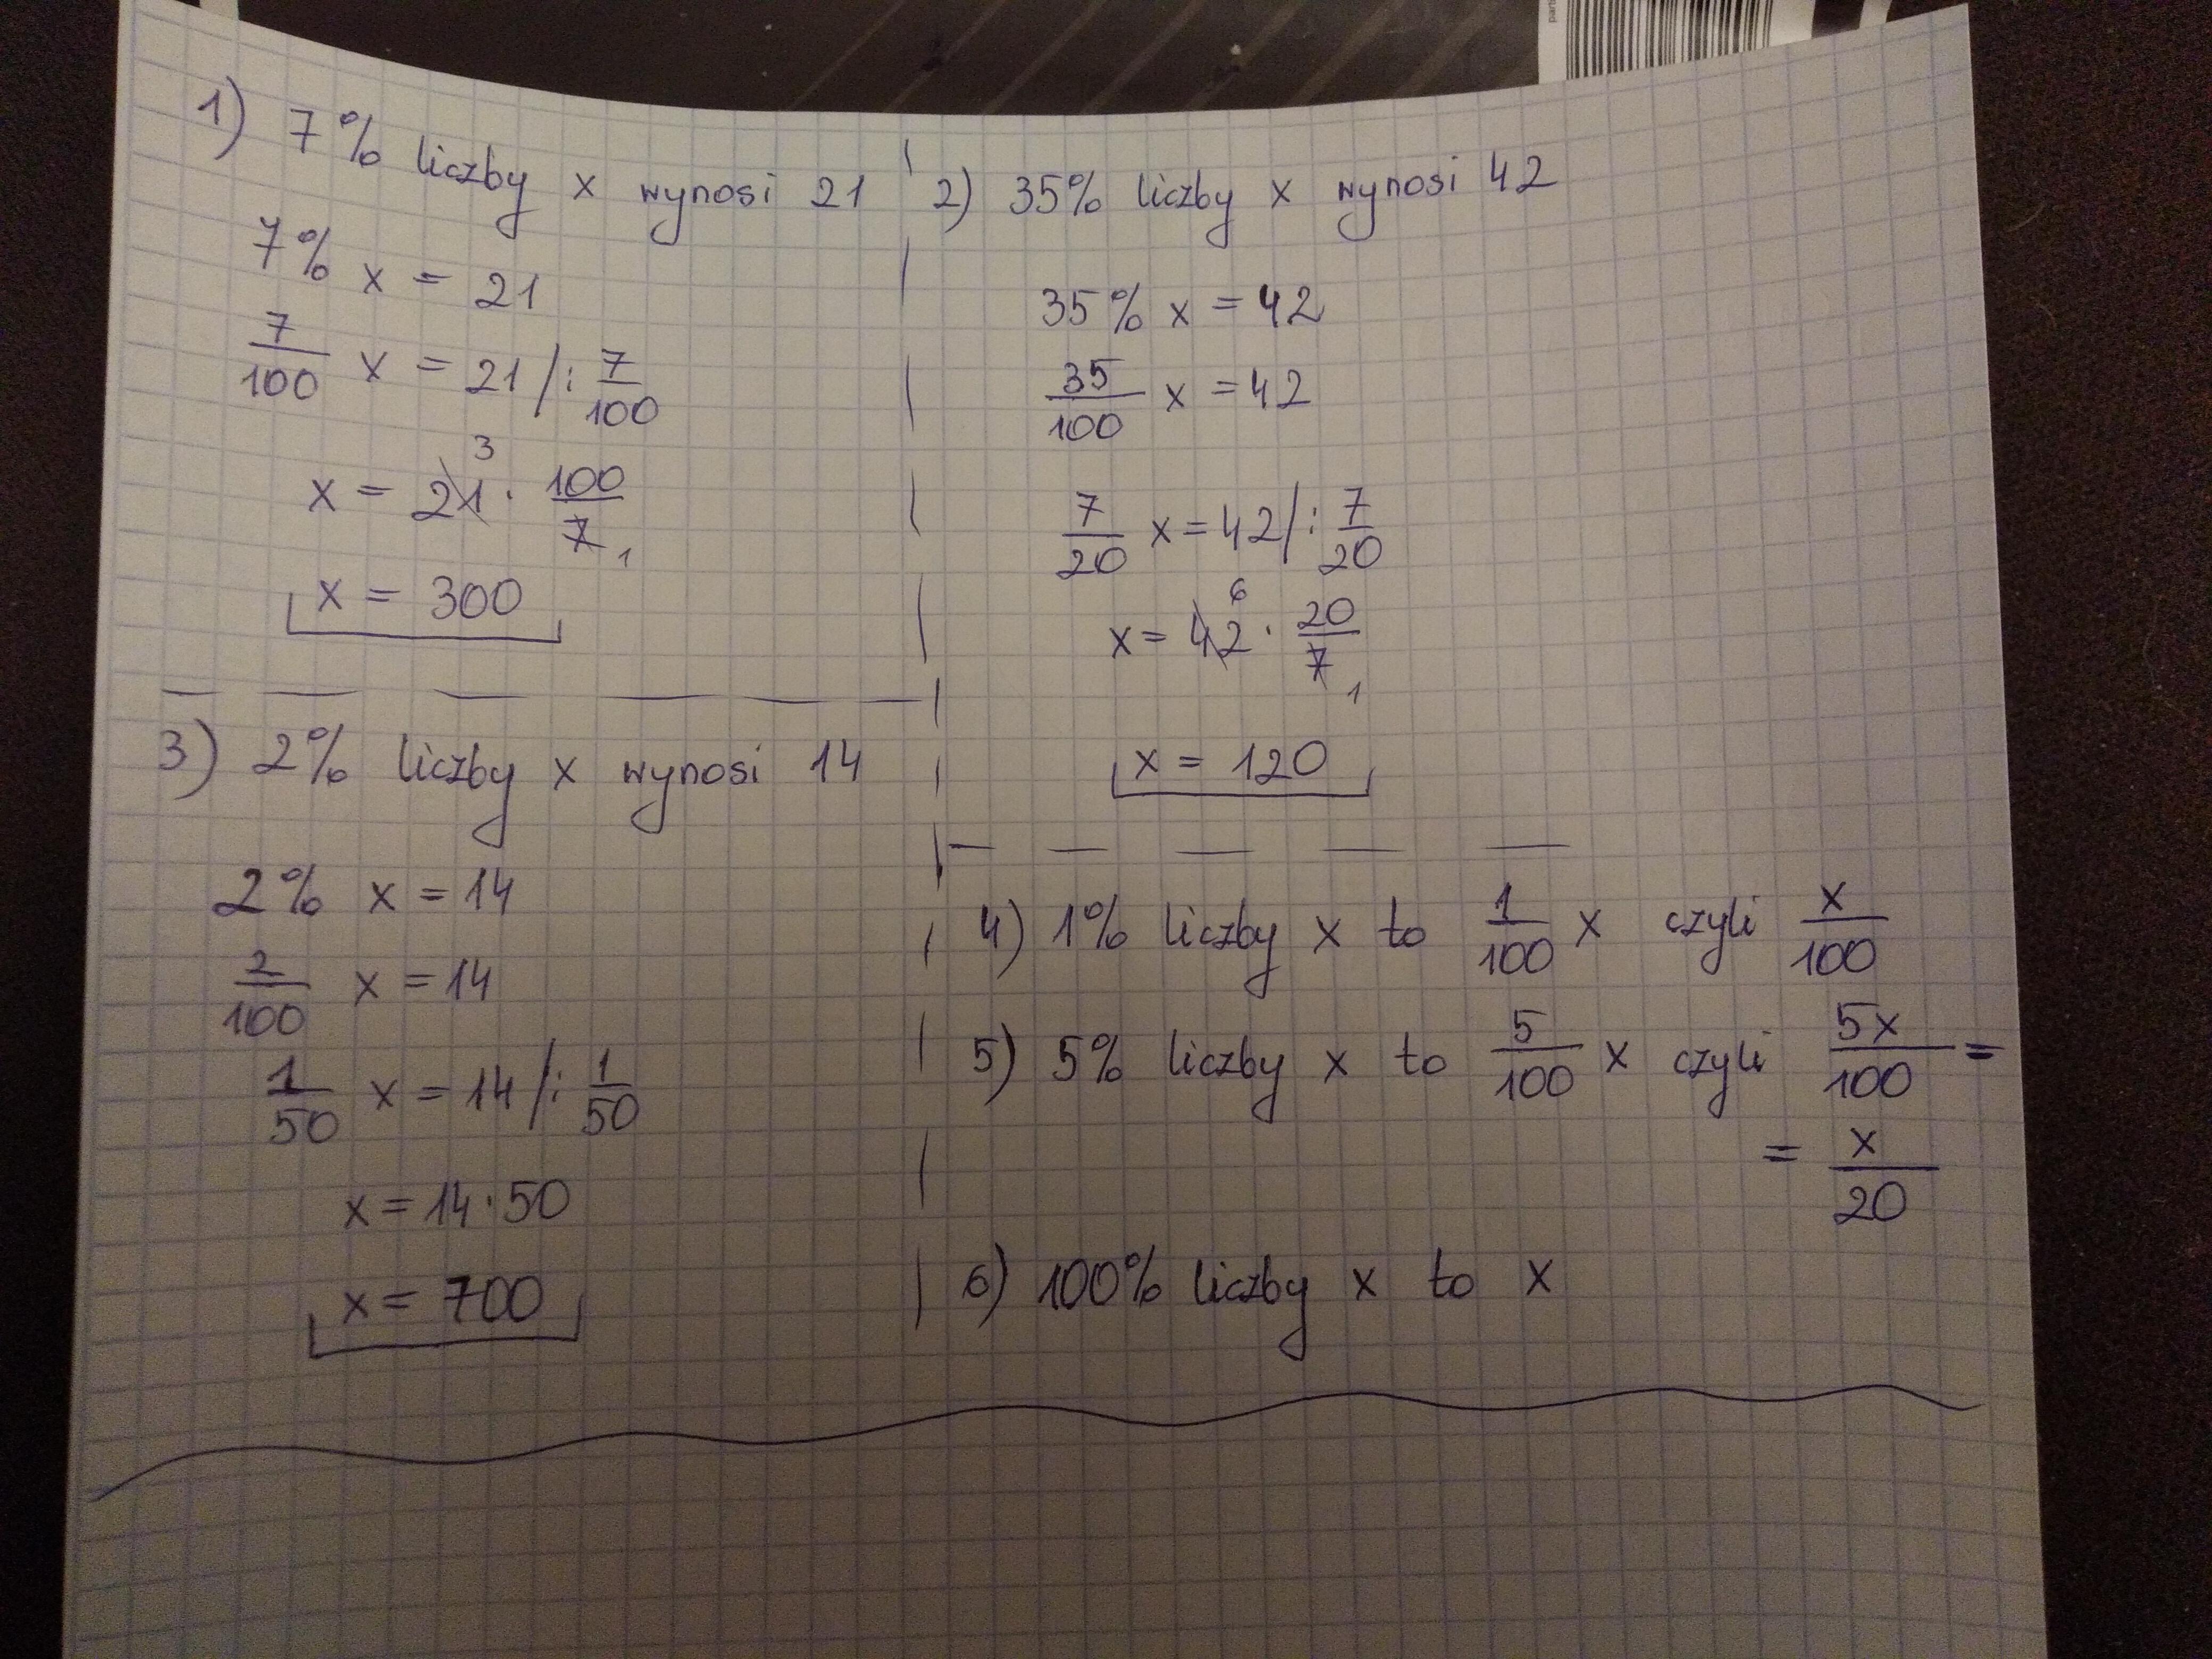 1) 7% liczby x wynosi 21
7% x = 21
7/100 x = 21 /: 7/100
3
x = 21 · 100/7 1
x = 300
2) 35% liczby x wynosi 42
35% x = 42
35/100 x = 42
7/20 x = 42 /: 7/20
6
x = 42 · 20/7 1
x = 120
3) 2% liczby x wynosi 14
2% x = 14
2/100 x = 14
1/50 x = 14 /: 1/50
x = 14 · 50
x = 700
4) 1% liczby x to 1/100 x czyli x/100
5) 5% liczby x to 5/100 x czyli 5x/100 =
= x/20
6) 100% liczby x to x